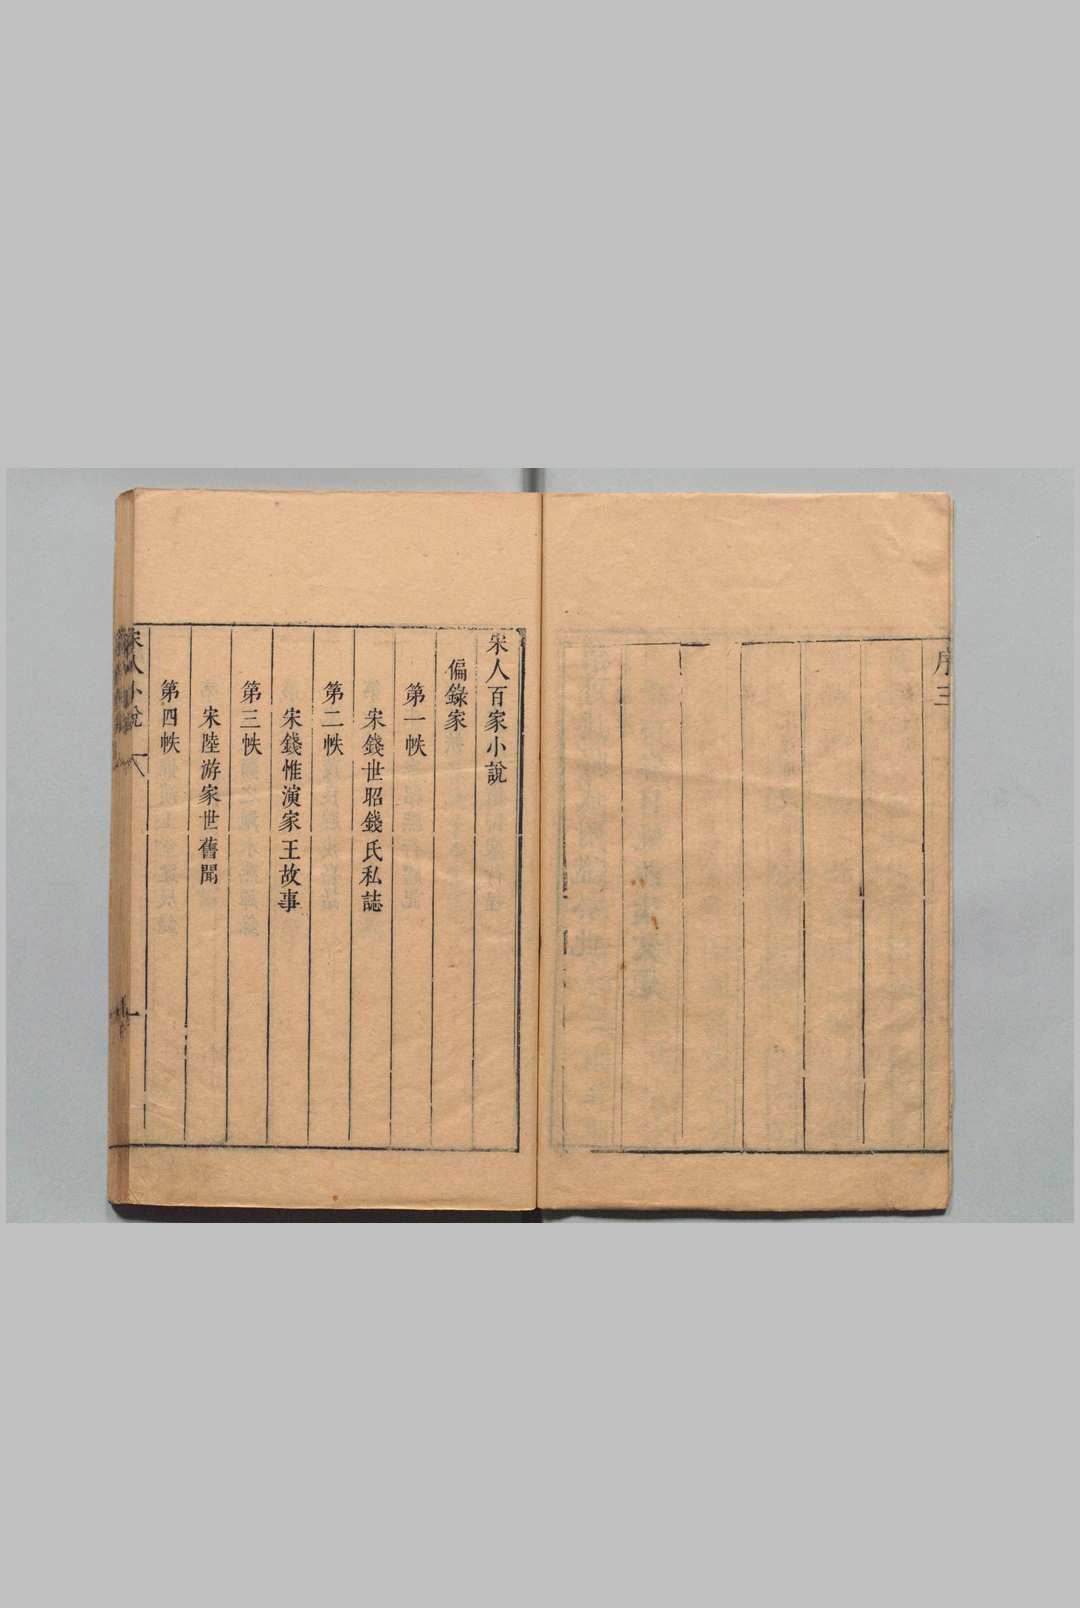 序三
宋人百家小說
偏錄家
第一帙
宋錢世昭錢氏私誌
第二帙
宋錢惟演家王故事
第三帙
宋陸游家世舊聞
第四帙
宋人小說